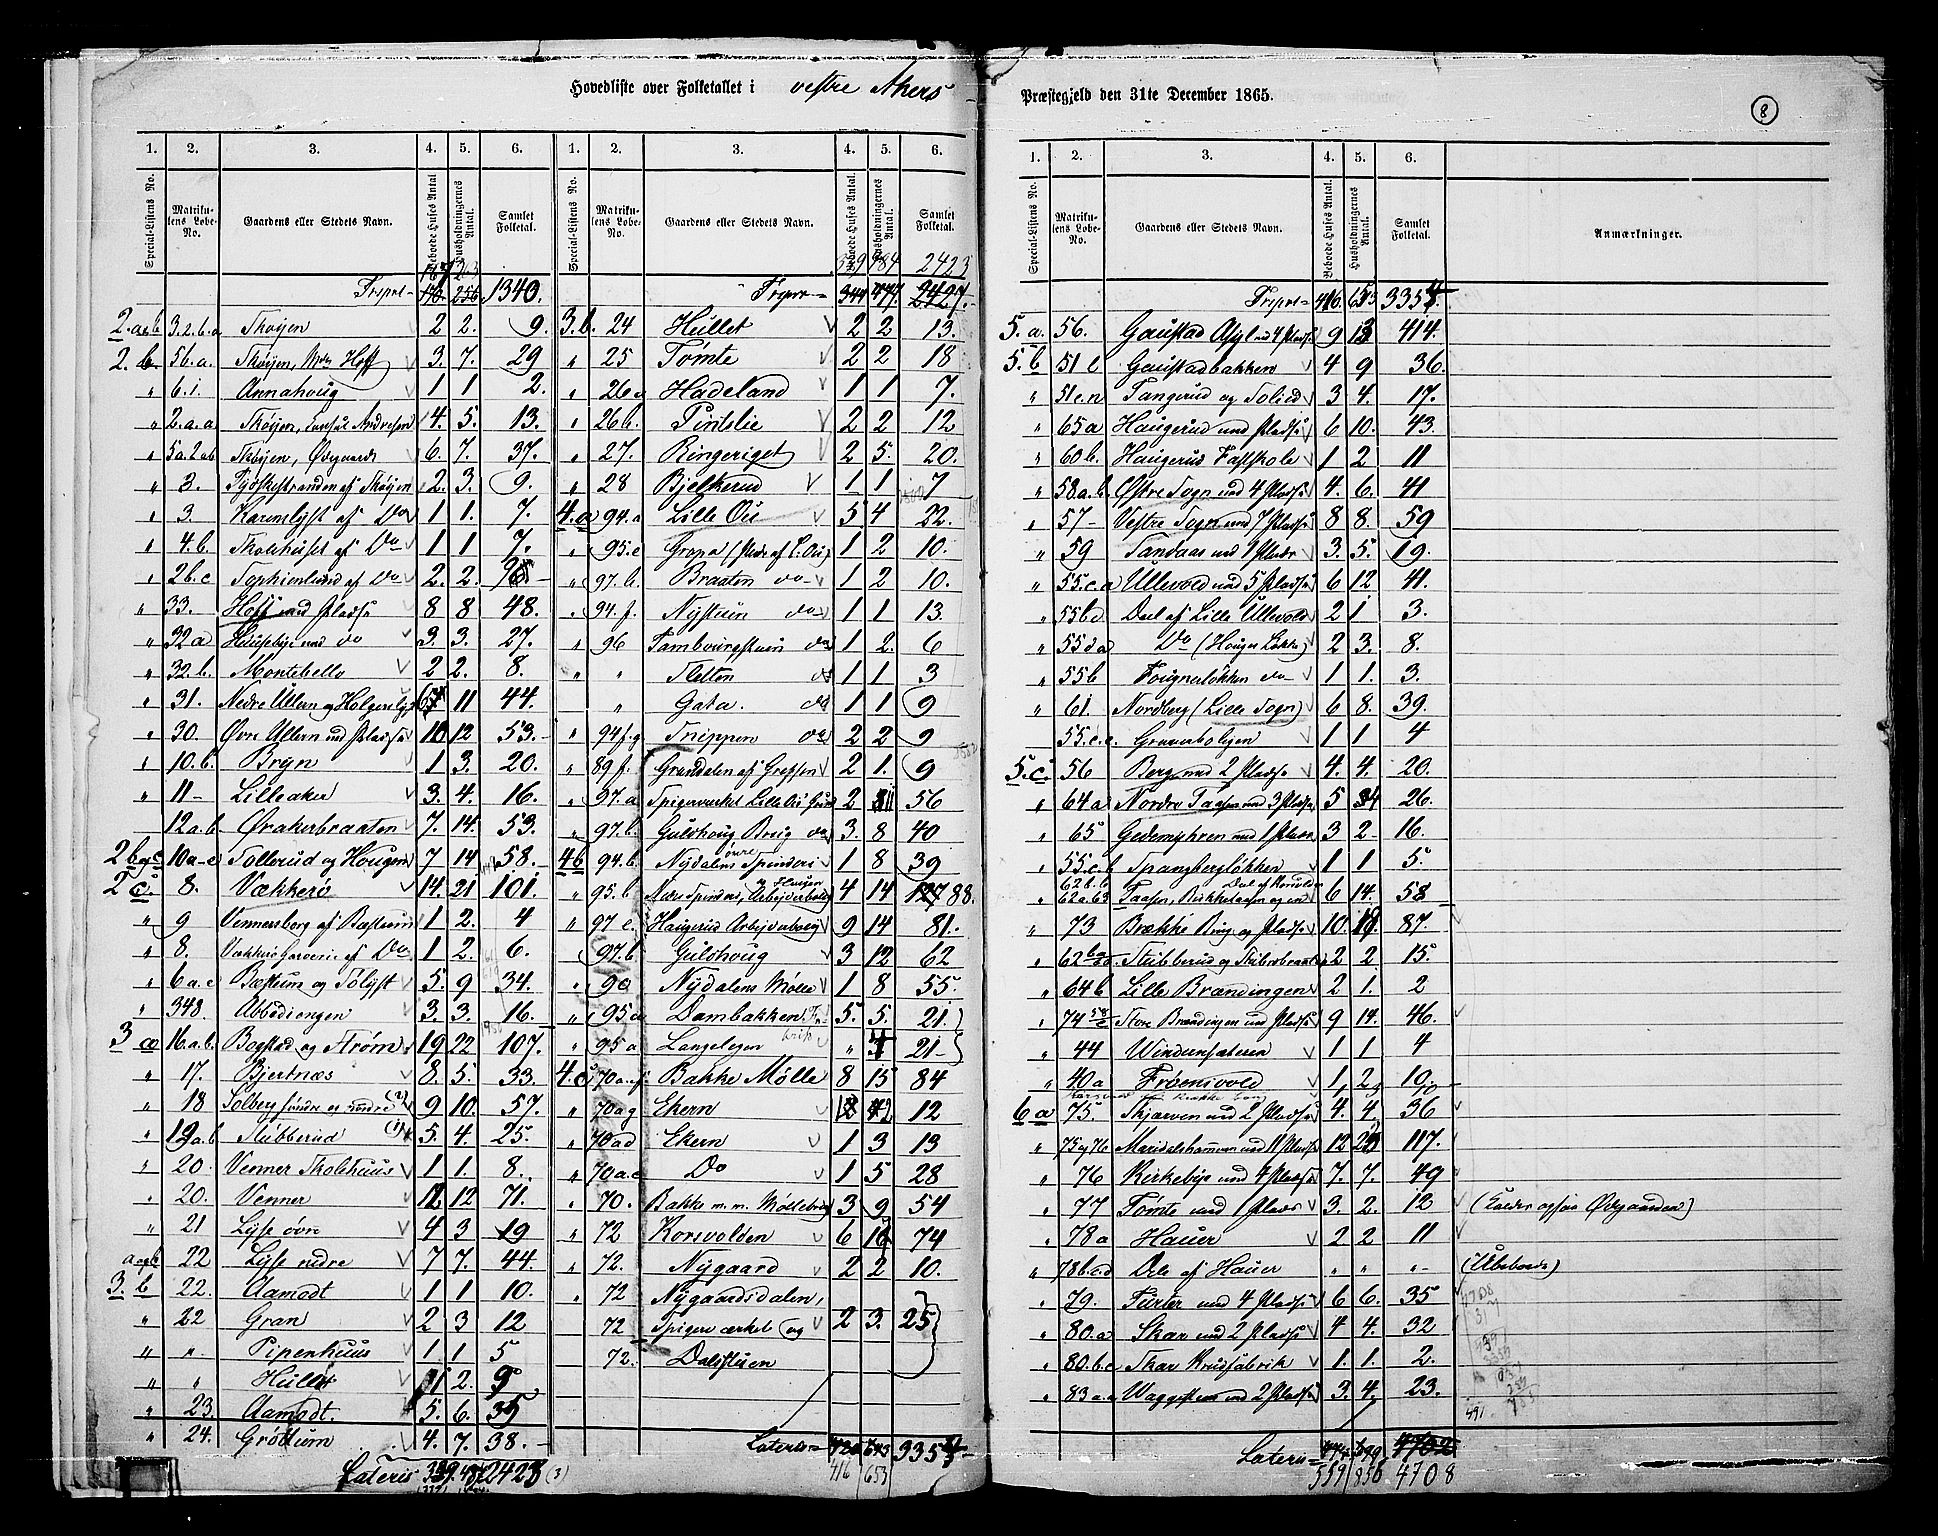 Hovedliste over Folketallet i vestre Akers Præstegjeld den 31te December 1865.
8
1. 2. 3. 4. 5. 6. 1. 2. 3. 4. 5. 6.
Special-Listens No. Matrikulens Løbe-No. Gaardens eller Stedets Navn. Beboede Huses Antal Husholdningernes Antal. Samlet Folketal.
Special-Listens No. Matrikulens Løbe-No. Gaardens eller Stedets Navn. Beboede Huses Antal. Husholdningernes Antal. Samlet Folketal.
1340.
2. 3.2.b.a Skøyen 2 2. 9.
2. b. 5b.a. Skøyen, Hoff 3. 7. 29
" 6.i. Annahoug 1 1 2.
" 2.a.a Skøyen, Consul Andresen 4. 5. 13.
" 5a.2ab Skøyen, Øvregaards 6. 7. 37.
" 3. Tydskestranden af Skøyen 2. 3. 9.
" 3. Karenlyst af Do 1 1. 7.
" 4.b. Skolehuset af Do 1 1 7.
" 2b.c Sophienlund af Do 2. 2.
" 33. Hoff med Pladse 8 8 48.
" 32a Husebye med do 3. 3. 27.
" 32.b. Montebello 2 2. 8.
" 31. Nedre Ullern og Holgerslyst 11 44.
" 30. Øvre Ullern med Pladse 10 12 53.
" 10.b. Bryn 1 3. 20.
" 11 Lilleaker 3. 4. 16.
12a.b Ørakerbraaten 7. 14. 53.
2b og c 10a-e Sollerud og Hougen 7 14 58.
2 c. 8. Vækkerø 14. 21 101.
" 9 Vennersborg af Bæstum 1 2. 4
" 8. Vækkerø Garveri af Do 1 2. 6.
" 6a.c Bæstum og Solyst 5. 9 34.
" 348 Abbediengen 3. 3. 16.
3 a 16.a.b. Bogstad og Strøm 19 22 107.
" 17. Bjertnæs 8. 5. 33.
" 18 Solberg søndre og nordre 9 10. 57.
" 19a.b Stubberud 5. 4. 25.
" 20. Venner Skolehuus 1 1. 8.
" 20. Venner 12 12 71.
" 21 Lysse øvre 4 3 19
a og b 22 Lysse nedre 7 7. 44.
3. b 22. Aamodt 1 1 10.
" 22 Gran 2 3 12
" " Pipenhuus 1 1 5
" " Hullet 1 2. 9
" 23. Aamodt. 5. 6. 35
" 24. Grøttum 4. 7. 38.
Lateris 339. 2423 (3)
339 484 2423
3.b. 24 Hullet 2 2 13.
" 25 Tømte 2 2 18
" 26a Hadeland 1 1 7.
" 26b. Pintslie 2 2 12
" 27. Ringeriget 2 5. 20.
" 28 Bjelkerud 1 1 7
4.a 94.a Lille Oú 5 4 22.
" 95.c Gropa (Plads af L. Oú) 1 2 10.
" 97.b. Braaten do 1 2 10.
" 94.f. Nystuen do 1 1 13
" 96 Tamboursstuen do 1 2. 6
" " Sletten do 1 1 3
" Gata do 1 1 9
" 94f.g Snippen do 2 2 9
" 89f. Grændalen af Grefsen 2 1. 9
" 97.a Spigerværket Lille Oú 2 11 56
" 97.b. Guldhoug Brug do 3. 8 40
4b 94.b. Nydalens øvre Spinderi 1 8 39
" 95.b Nedre Spinderi, Arbeiderbolig 4 14 88.
" 97 c. Haugerud Arbeiderbolig 9 14 81.
" 97.b Guldhoug 3 12 62
" 9c Nydalens Mølle 1 8 55.
" 95a Dambakken 5. 5. 21.
" 95a Langelegen " 4 21
4.c 70a. Bakke Mølle 8 15 84
" 70ag Ekern 2 12
" 70ad Ekern 1 3 13
" 70a.e Do 1 5 28
" 70. Bakke m. m. Møllebrug 3 9 54
" 72 Korsvolden 6 16 74
" 72. Nygaard 2 2 10.
" 72 Nygaardsdalen,
72 Spigerværket og 2 3. 25
72. Dalsstuen
Lateris 3354
416 653
1. 2. 3. 4. 5. 6.
Special-Listens No. Matrikulens Løbe-No. Gaardens eller Stedets Navn. Beboede Huses Antal. Husholdningernes Antal. Samlet Folketal. Anmærkninger.
416. 653 3354
5.a. 56. Gaustad Asyl med 4 Pladse 9 13 414.
5.b 51 l Gaustadbakken 4 9 36.
" 51c.n Tangerud og Solied 3 4. 17.
" 65a Haugerud med Pladse 6 10. 43.
" 60b. Haugerud Fastskole 1 2 11
" 58.a.b. Østre Sogn med 4 Pladse 4. 6. 41
" 57 Vestre Sogn med 7 Pladse 8 8. 59
" 59 Sandaas med 1 Plads 3. 5. 19.
" 55.c.a Ullevold med 5 Pladse 6 12 41.
" 55bd Deel af Lille Ullevold 2 1 3.
" 55da Do (Houger Løkke) 2 3. 8.
" 55b Fougnerløkken do 1 1. 3.
" 61. Nordberg (Lille Sogn) 6 8. 39.
55.c.c. Graverboligen 1 1 4
5.c. 56 Berg med 2 Pladse 4. 4. 20.
" 64a Nordre Taasen med 3 Pladse 5 4 26.
" 65 Gedemyhren med 1 Plads 3 2 16.
" 55.c.b Spangbergløkken 1 1 5.
" 62a.63 Taasen 6 14. 58
" 73 Brække Brug og Pladse 10. 18. 87.
" 62 Stubberud og Stubberudbraaten 2 2 15.
" 64b Lille Brændingen 2 1. 2
" 74 Store Brændingen med Pladse 9 14. 46.
" 44 Windernsæteren 1 1 4
" 40a Frøensvold 1 2 10
6 a 75. Skjærven med 2 Pladse 4. 4. 36
" 75 og 76 Maridalshammeren med 11 Pladse 12 117.
" 76 Kirkebye med 4 Pladse 7. 7. 49
" 77 Tømte med 1 Plads 3. 2. 12 (kaldes ogsaa Øvregaarden)
" 78a Hauer 2 2 11
" 78b.c.d Dele af Hauer " " " (Ubeboede)
" 79. Turter med 4 Pladse 6 6. 35
" 80.a Skar med 2 Pladse 4 4. 32
" 80.b.c Skar Krudfabrik 1. 1. 2.
" 83a.a Waggestein med 2 Pladse 3. 4. 23.
491
Lateris
559 856 4708